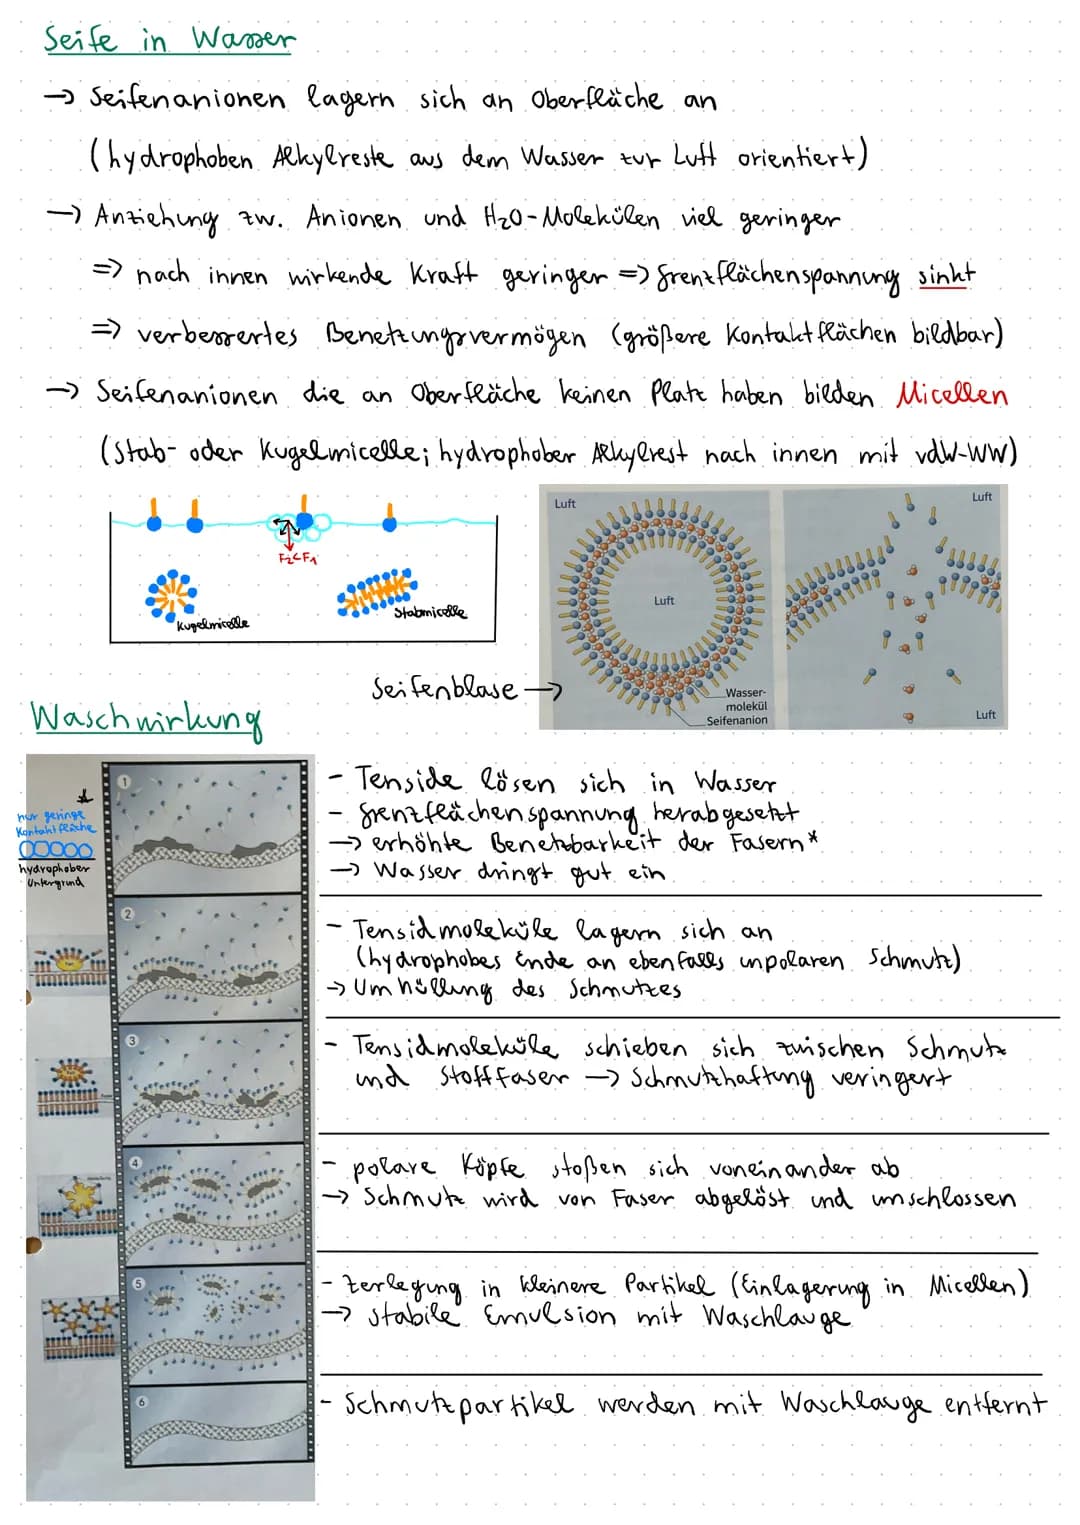 Seife in Wasser
→ Seifenanionen lagern sich an Oberfläche an
(hydrophoben Alkylreste aus dem Wasser zur Luft orientiert)
→ Anziehung zw. Anionen und H2O-Molekülen viel geringer
=> nach innen wirkende Kraft geringer => Grenzflächenspannung sinkt
=> verbessertes Benetzungsvermögen (größere Kontaktflächen bildbar)
→ Seifenanionen die an Oberfläche keinen Platz haben bilden Micellen
(Stab- oder Kugelmicelle; hydrophober Alkylrest nach innen mit vdW-WW)
F2<F1
Kugelmicelle
Stabmicelle
Seifenblase →
Luft
Luft
Wasser-
molekül
Seifenanion
Luft
Luft
Waschwirkung
*
nur geringe
Kontaktfläche
hydrophober
Untergrund
1
- Tenside lösen sich in Wasser
- Grenzflächenspannung herabgesetzt
→ erhöhte Benetzbarkeit der Fasern*
→ Wasser dringt gut ein
2
- Tensidmoleküle lagern sich an
(hydrophobes Ende an ebenfalls unpolaren Schmutz)
→ Umhüllung des Schmutzes
3
- Tensidmoleküle schieben sich zwischen Schmutz
und Stofffaser → Schmutzhaftung veringert
4
- polare Köpfe stoßen sich voneinander ab
→ Schmutz wird von Faser abgelöst und umschlossen
5
- Zerlegung in kleinere Partikel (Einlagerung in Micellen)
→ stabile Emulsion mit Waschlauge
6
- Schmutzpartikel werden mit Waschlauge entfernt